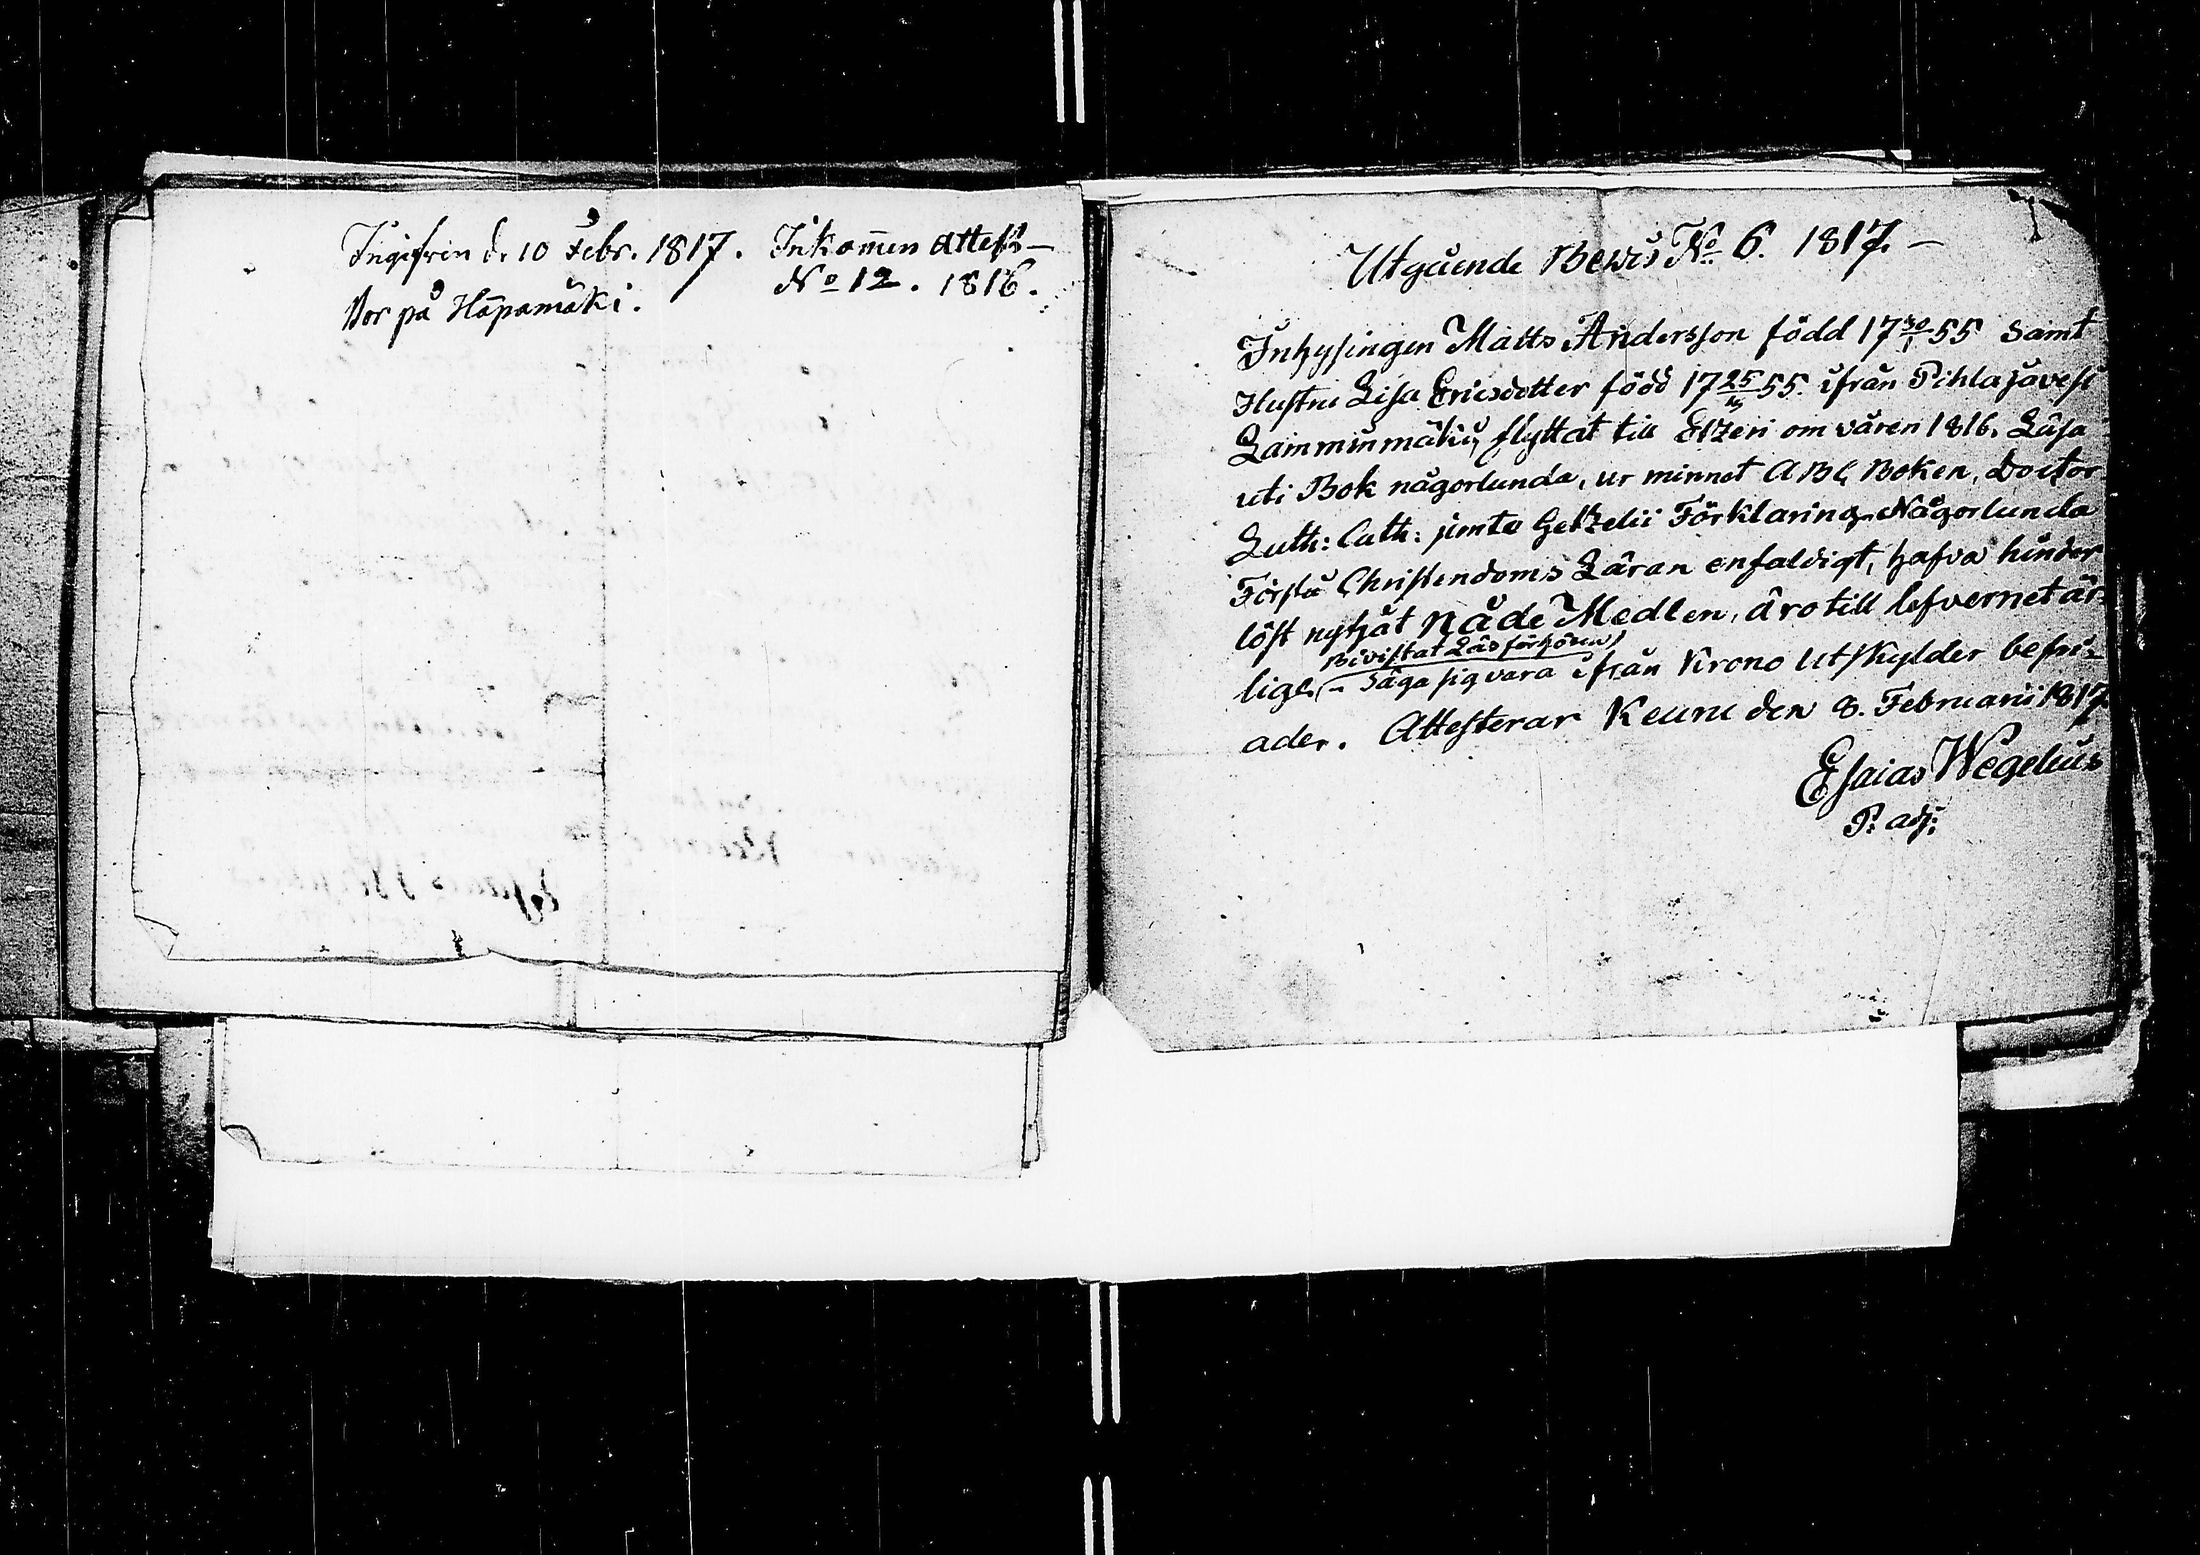 Ingifven d. 10 Febr. 1817. Inkom̄en Attest –
No 12. 1816.
Bor på Hapamäki.
Utgående Bewis No 6. 1817. –
Inhysingen Matts Andersson född 17 30/1 55 samt
Hustru Lisa Ericsdotter född 17 25/ 55. ifrån Pihlajavesi
flyttat till Etzeri om våren 1816. Läsa
uti Bok någorlunda, ur minnet ABC Boken, Doctor
Luth: Cath: jemte Getzelii Förklaring Någorlunda
Förstå Christendoms Läran enfaldigt, hafva hinder
löst nytjat Nåde Medlen, äro till lefvernet är-
Bivistat Läsförhören
lige, – Säga sig vara ifrån Krono Utskylder befri-
ader. Attesterar Keuru den 8. Februarii 1817
Esaias Wegelius
P. adj: